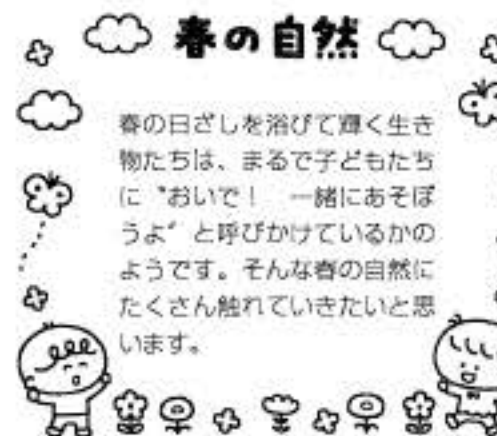 春の自然
春の日ざしを浴びて輝く生き
物たちは、まるで子どもたち
に〝おいで！　一緒にあそぼ
うよ〞と呼びかけているかの
ようです。そんな春の自然に
たくさん触れていきたいと思
います。